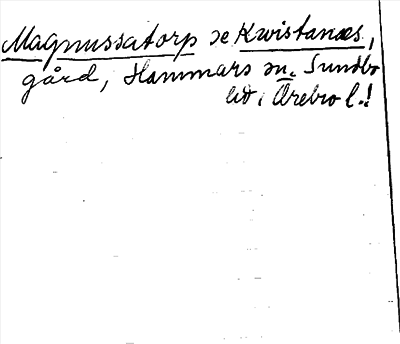 Magnussatorp se Kwistanæs,
gård, Hammars sn. Sundbo
hd i Örebro l.!